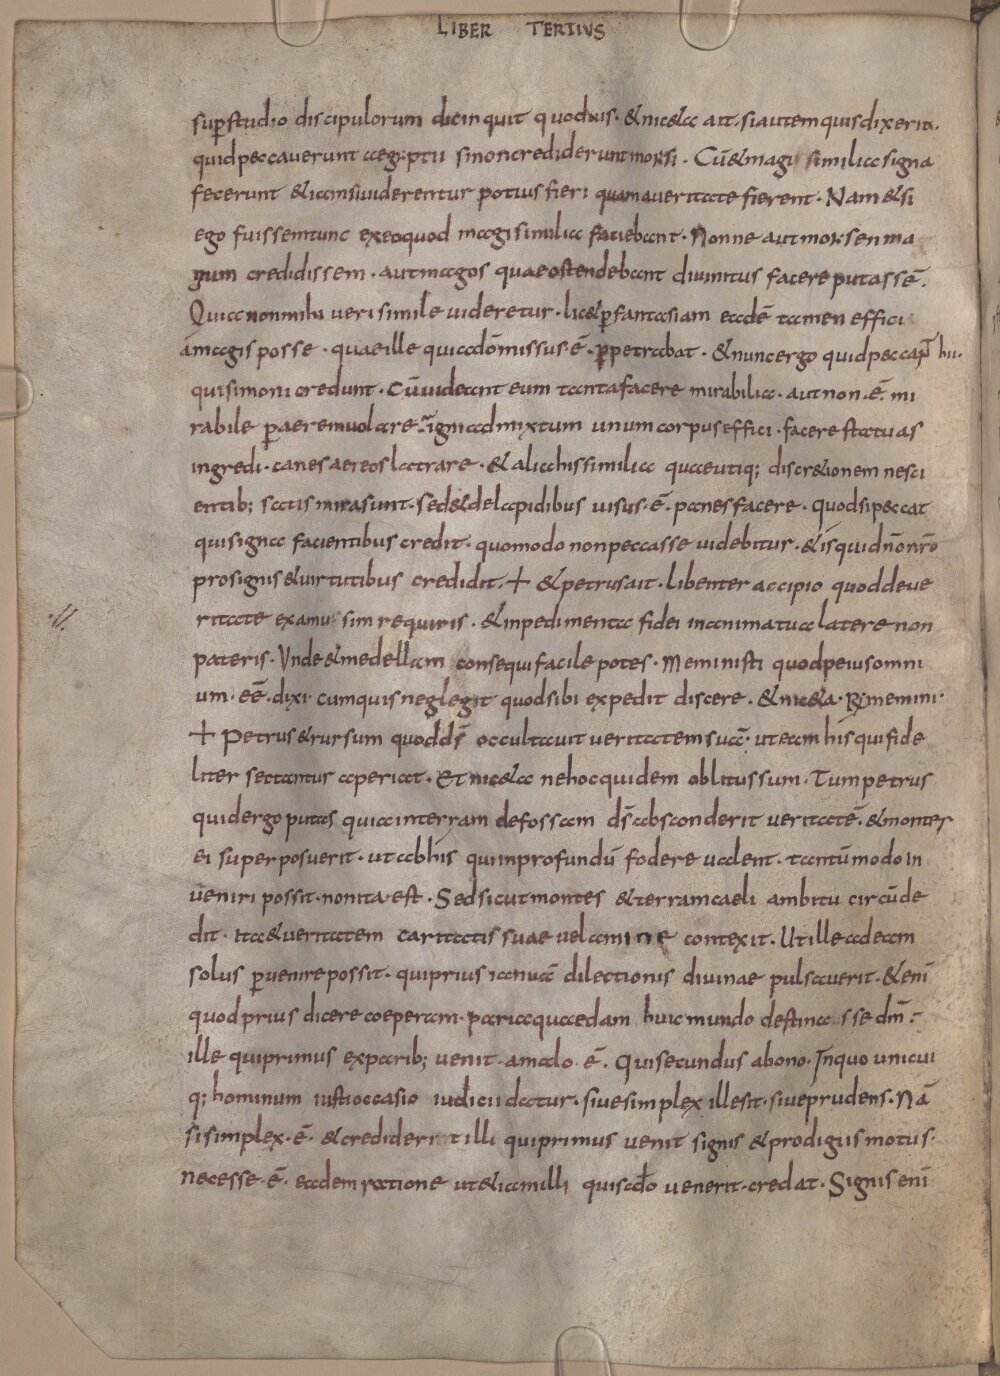 LIBER TERTIUS
sup studio discipulorum dic inquit quod uis · & nic&a ait · si autem quis dixerit ·
quid peccauerunt aegyptii si non crediderunt mosi · Cū & magi similia signa
fecerunt & iam si uiderentur potius fieri quam a ueritate fierent · Nam & si
ego fuissem tunc ex eo quod magi similia faciebant · Nonne aut mosen ma
gum credidissem · aut magos quae ostendebant diuinitus facere putassē ·
Quia non mihi uerisimile uideretur · lic& p fantasiam eadē tamen effici
a magis posse · quae ille qui a dō missus · ē · ppetrabat · & nunc ergo quid peccant hi ·
qui simoni credunt · Cū uideant eum tanta facere mirabilia · aut non · ē · mi
rabile p aerem uolare · igni admixtum unum corpus effici · facere statuas
ingredi · canes aereos latrare · & alia his similia quae utiq; discr&ionem nesci
entib; satis mira sunt · sed & de lapidibus uisus · ē · panes facere · quod si peccat
qui signa facientibus credit · quomodo non peccasse uidebitur · & is qui dn̄o nr̄o
pro signis & uirtutibus credidit · + & petrus ait · libenter accipio quod de ue
ritate examussim requiris · & inpedimenta fidei in anima tua latere non
pateris · Unde & medellam consequi facile potes · Meministi quod peius omni
um · eē · dixi · cum quis neglegit quod sibi expedit discere · & nic&a · R memini ·
+ Petrus & rursum quod ds̄ occultauit ueritatem suā · ut eam his qui fide
liter sectantur aperiat · Et nic&a ne hoc quidem oblitus sum · Tum petrus
quid ergo putas quia in terram defossam ds̄ absconderit ueritatē · & montes
ei superposuerit · ut ab his qui in profundū fodere ualent · tantū modo in
ueniri possit · non ita est · Sed sicut montes & terram caeli ambitu circūde
dit · ita & ueritatem caritatis suae uelamine contexit · Ut ille ad eam
solus puenire possit · qui prius ianuā dilectionis diuinae pulsauerit · & enī
quod prius dicere coeperam · paria quaedam huic mundo destinasse dm̄ ·
ille qui primus ex parib; uenit · a malo · ē · Qui secundus a bono · In quo unicui
q; hominum iusti occasio iudicii datur · siue simplex ille sit · siue prudens · Nā
si simplex · ē · & crediderit illi qui primus uenit signis & prodigiis motus ·
necesse · ē · eadem ratione ut & iam illi qui scdō uenerit · credat · Signis enī